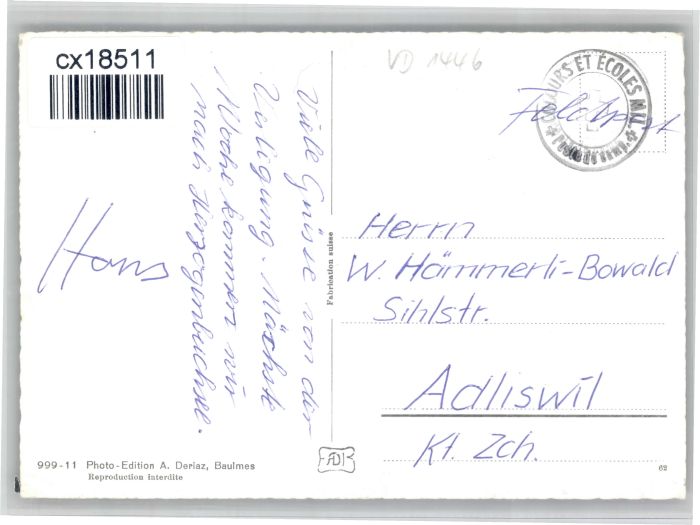 cx18511
VD 1446
COURS ET ÉCOLES MIL.
Feldpost
Viele Grüsse von der
Verlegung. Nächste
Woche kommen wir
nach Herzogenbuchsee.
Hans
Fabrication suisse
Herrn
W. Hämmerli-Bowald
Sihlstr.
Adliswil
Kt. Zch.
999-11 Photo-Edition A. Deriaz, Baulmes
Reproduction interdite
62